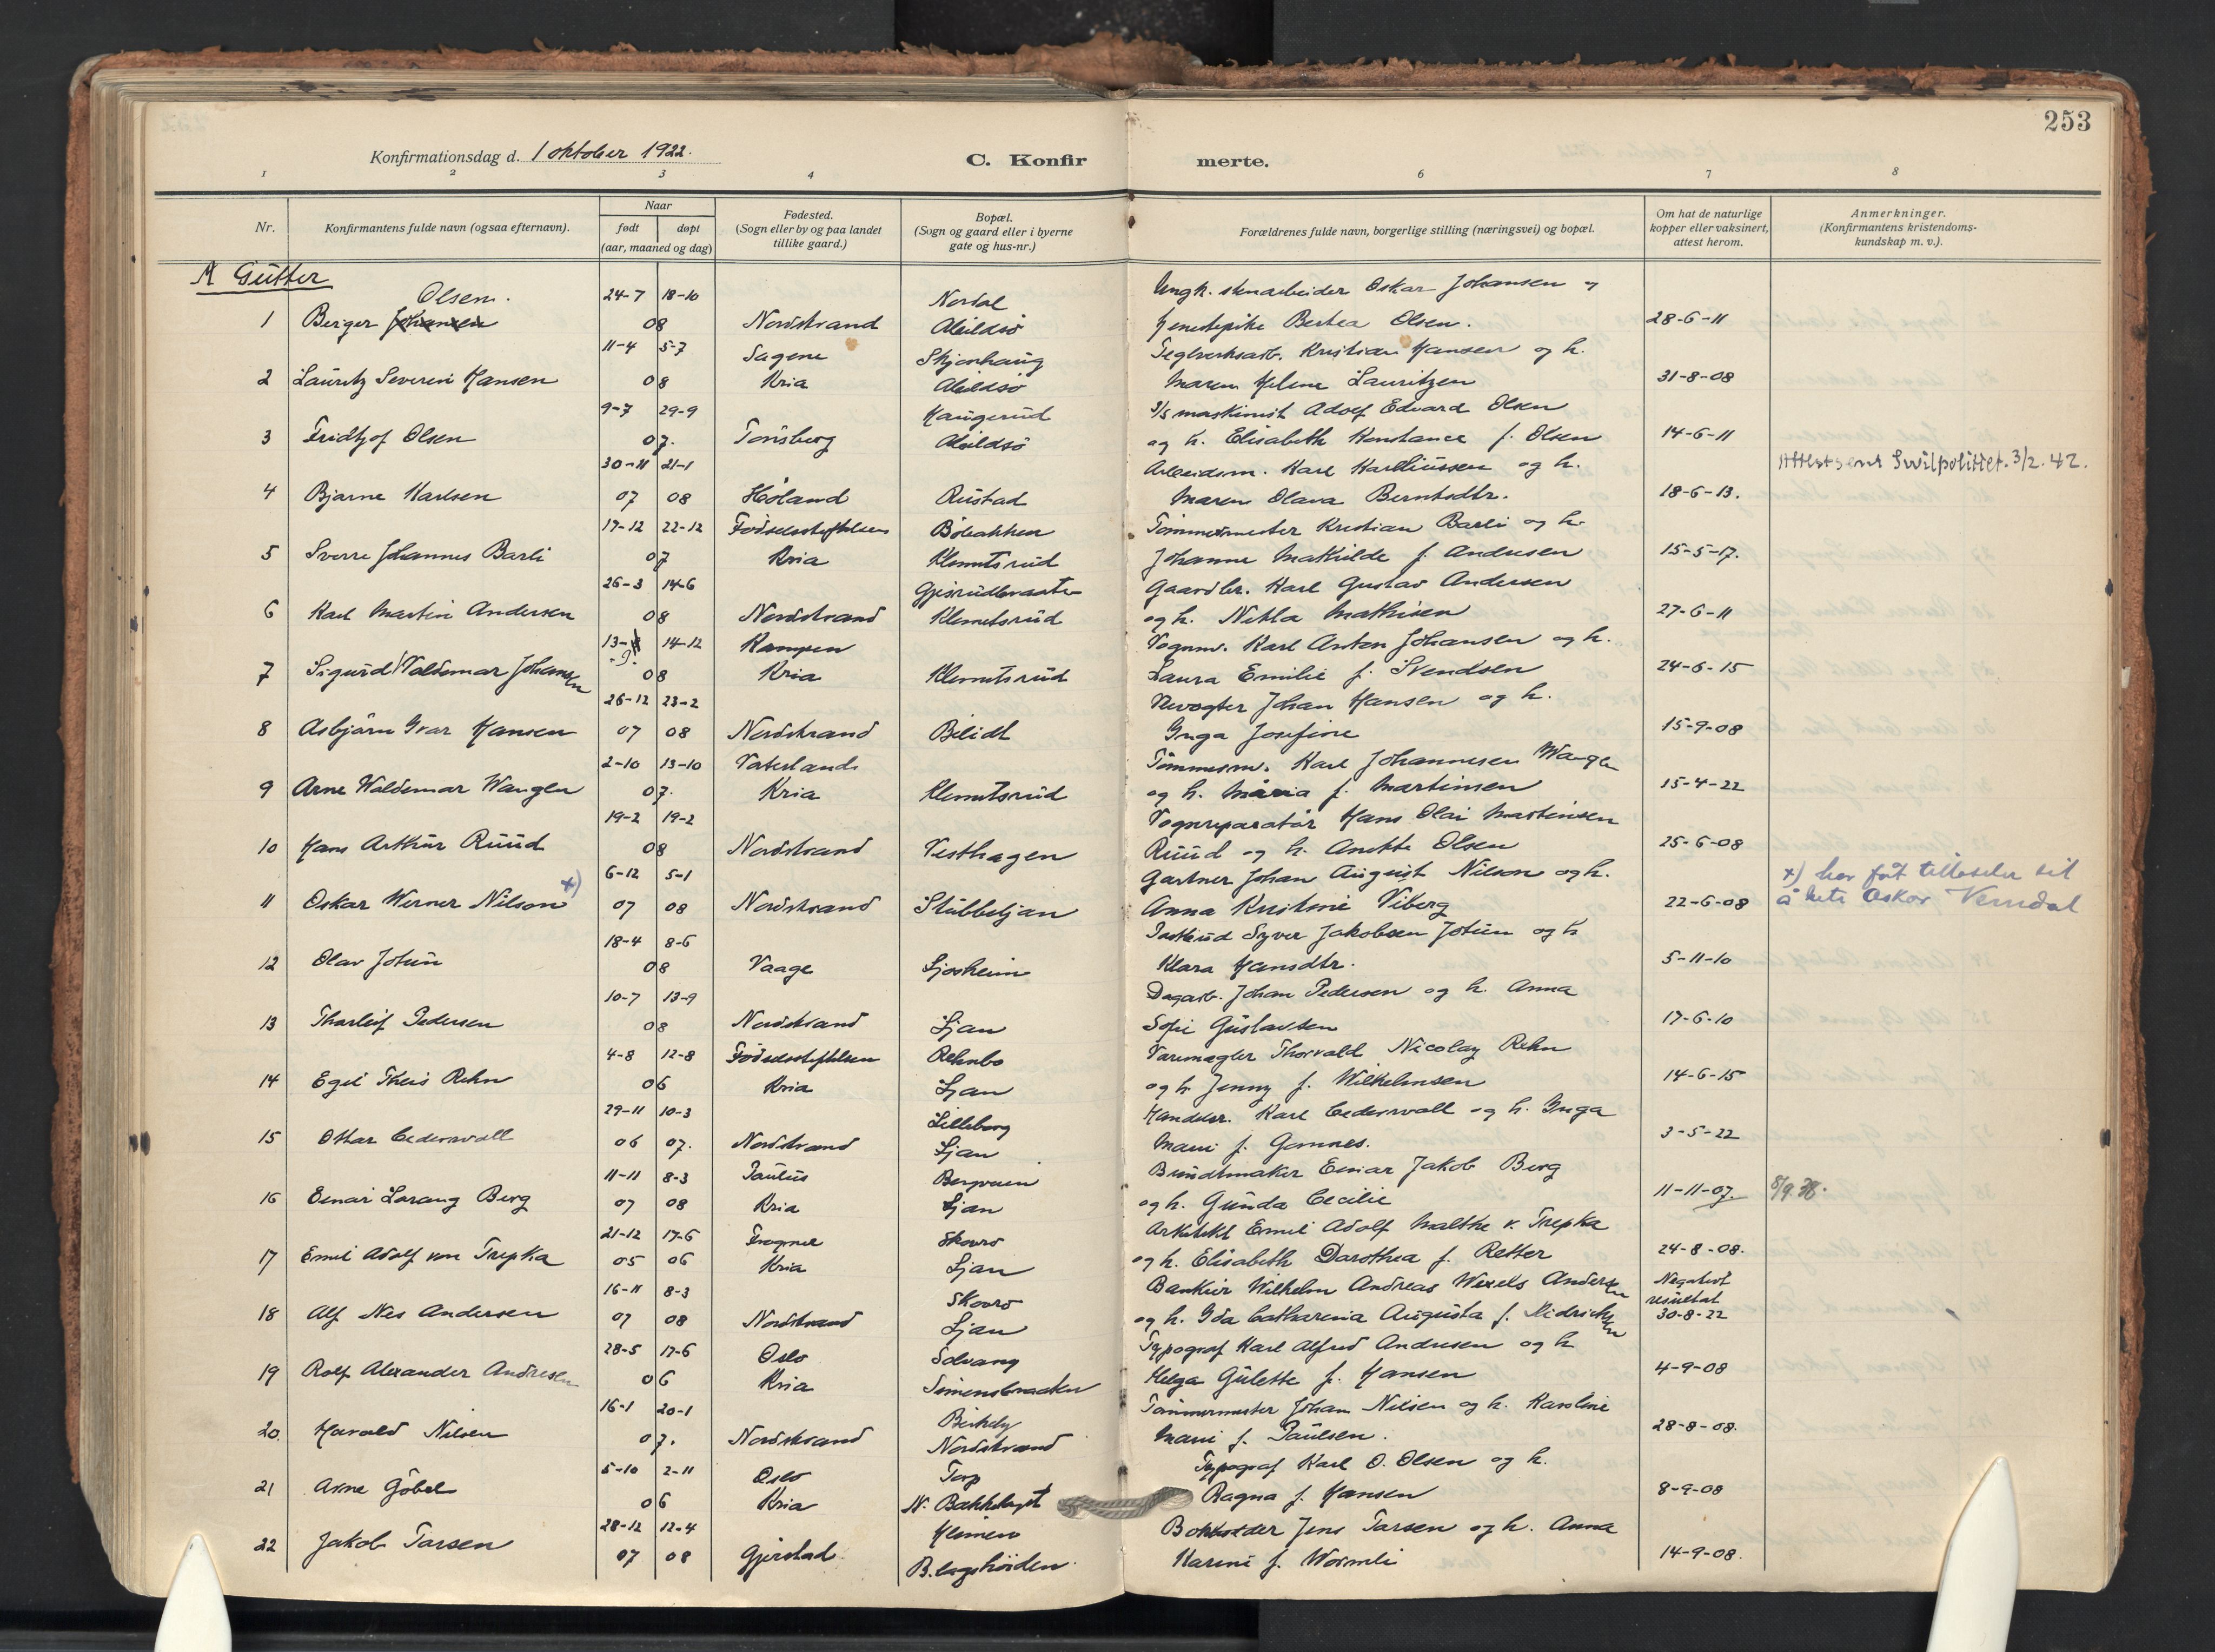 253
Konfirmationsdag d. 1 oktober 1922.
C. Konfirmerte.
1 2 3 4 6 7 8
Nr.
Konfirmantens fulde navn (ogsaa efternavn).
Naar
født døpt
(aar, maaned og dag)
Fødested.
(Sogn eller by og paa landet
tillike gaard.)
Bopæl.
(Sogn og gaard eller i byerne
gate og hus-nr.)
Forældrenes fulde navn, borgerlige stilling (næringsvei) og bopæl.
Om hat de naturlige
kopper eller vaksinert,
attest herom.
Anmerkninger.
(Konfirmantens kristendoms-
kundskap m. v.).
A Gutter
Olsen. 24-7 18-10 Nordal Ungk. stenarbeider Oskar Johansen og
1 Berger Johansen 08 Nordstrand Abildsø tjenestepike Bertea Olsen. 28-6-11
11-4 5-7 Sagene Skjønhaug Teglverksarb. Kristian Hansen og h.
2 Lauritz Severin Hansen 08 Kria Abildsø Maren Helene Lauritzen 31-8-08
9-7 29-9 Haugerud D/S maskinist Adolf Edvard Olsen
3 Fridtjof Olsen 07. Tønsberg Abildsø og h. Elisabeth Konstance f. Olsen 14-6-11
30-11 21-1 Arbeidsm. Karl Karlliussen og h. Attest sent Sivilpolitiet. 3/2. 42.
4 Bjarne Karlsen 07 08 Høland Rustad Maren Olava Berntsdtr. 18-6-13.
17-12 22-12 Fødselsstiftelsen Bølbakken Tømmermester Kristian Barli og h.
5 Sverre Johannes Barli 07 Kria Klemetsrud Johanne Mathilde f. Andresen 15-5-17.
26-3 14-6 Gjersrudbraaten Gaardbr. Karl Gustav Andersen
6 Karl Martin Andersen 08 Nordstrand Klemetsrud og h. Mathisen 27-6-11
13- 14-12 Kampen Vognm. Karl Anton Johansen og h.
-9.
7 Sigurd Valdemar Johansen 08 Kria Klemetsrud Laura Emilie f. Svendsen 24-6-15
26-12 23-2 Johan Hansen og h.
8 Asbjørn Ivar Hansen 07 08 Nordstrand Bilidt Inga Josefine 15-9-08
2-10 13-10 Vaterlands Tømmerm. Karl Johannesen Wangen
9 Arne Waldemar Wangen 07. Kria Klemetsrud og h. Maria f. Martinsen 15-4-22
19-2 19-2 Vognreparatør Hans Olai Martinsen
10 Hans Arthur Ruud 08 Nordstrand Vesthagen Ruud og h. Anette Olsen 25-6-08
6-12 5-1 Gartner Johan August Nilson og h. x) har fåt tillatelse til
11 Oskar Werner Nilson x) 07 08 Nordstrand Stubbeljan Anna Kristine Viberg 22-6-08 å hete Oskar Verndal
18-4 8-6 Postbud Syver Jakobsen Jotun og h
12 Olav Jotun 08 Vaage Ljosheim Klara Hansdtr. 5-11-10
10-7 13-9 Dagarb. Johan Pedersen og h. Anna
13 Tharleif Pedersen 08 Nordstrand Ljan Sofie Gustavsen 17-6-10
4-8 12-8 Fødselsstiftelsen Rehnbo Varemægler Thorvald Nicolay Rehn
14 Egil Theis Rehn 06 Kria Ljan og h. Jenny f. Wilhelmsen 14-6-15
29-11 10-3 Lilleborg Handelsr. Karl Cederwall og h. Inga
15 Ottar Cederwall 06 07. Nordstrand Ljan Marie f. Gomnes. 3-5-22
11-11 8-3 Paulus Bergveien Bundtmaker Einar Jakob Berg
16 Einar Lorang Berg 07 08 Kria Ljan og h. Gunda Cecilie 11-11-07. 8/9.38.
21-12 17-6 Frogner Skovro Arkitekt Emil Adolf Malthe v. Trepka
17 Emil Adolf von Trepka 05 06 Kria Ljan og h. Elisabeth Darothea f. Retter 24-8-08.
16-11 8-3 Skovro Bankier Wilhelm Andreas Wexels Andersen Negativt
resultat
18 Alf Nes Andersen 07 08 Nordstrand Ljan og h. Ida Catharina Augusta f. Didrichsen 30-8-22
28-5 17-6 Oslo Solvang Typograf Karl Alfred Andresen og h
19 Rolf Alexander Andresen 06 Kria Simensbraaten Helga Gulette f. Hansen 4-9-08
16-1 20-1 Birkely Tømmermester Johan Nilsen og h. Karoline
20. Harald Nilsen 07. Nordstrand Nordstrand Marie f. Paulsen. 28-8-08.
5-10 2-11 Oslo Torp Typograf Karl O. Olsen og h.
21 Arne Göbel 06 Kria N. Bækkelaget Ragna f. Hansen 8-9-08
28-12 12-4 Heimen Bokholder Jens Tarsen og h. Anna
22 Jakob Tarsen 07 08 Gjerstad B.lagshøiden Karine f. Wormli 14-9-08.